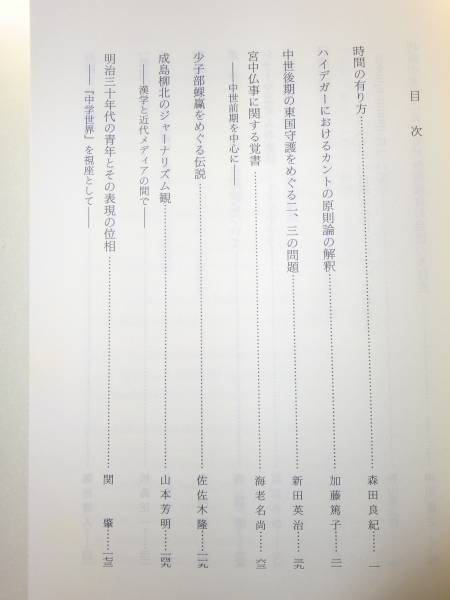 目次
時間の有り方……森田良紀……一
ハイデガーにおけるカントの原則論の解釈……加藤篤子……二一
中世後期の東国守護をめぐる二、三の問題……新田英治……三九
宮中仏事に関する覚書……海老名尚……六三
――中世前期を中心に――
少子部蜾蠃をめぐる伝説……佐佐木隆……一一九
成島柳北のジャーナリズム観……山本芳明……一四九
――漢学と近代メディアの間で――
明治三十年代の青年とその表現の位相……関肇……一七三
――『中学世界』を視座として――